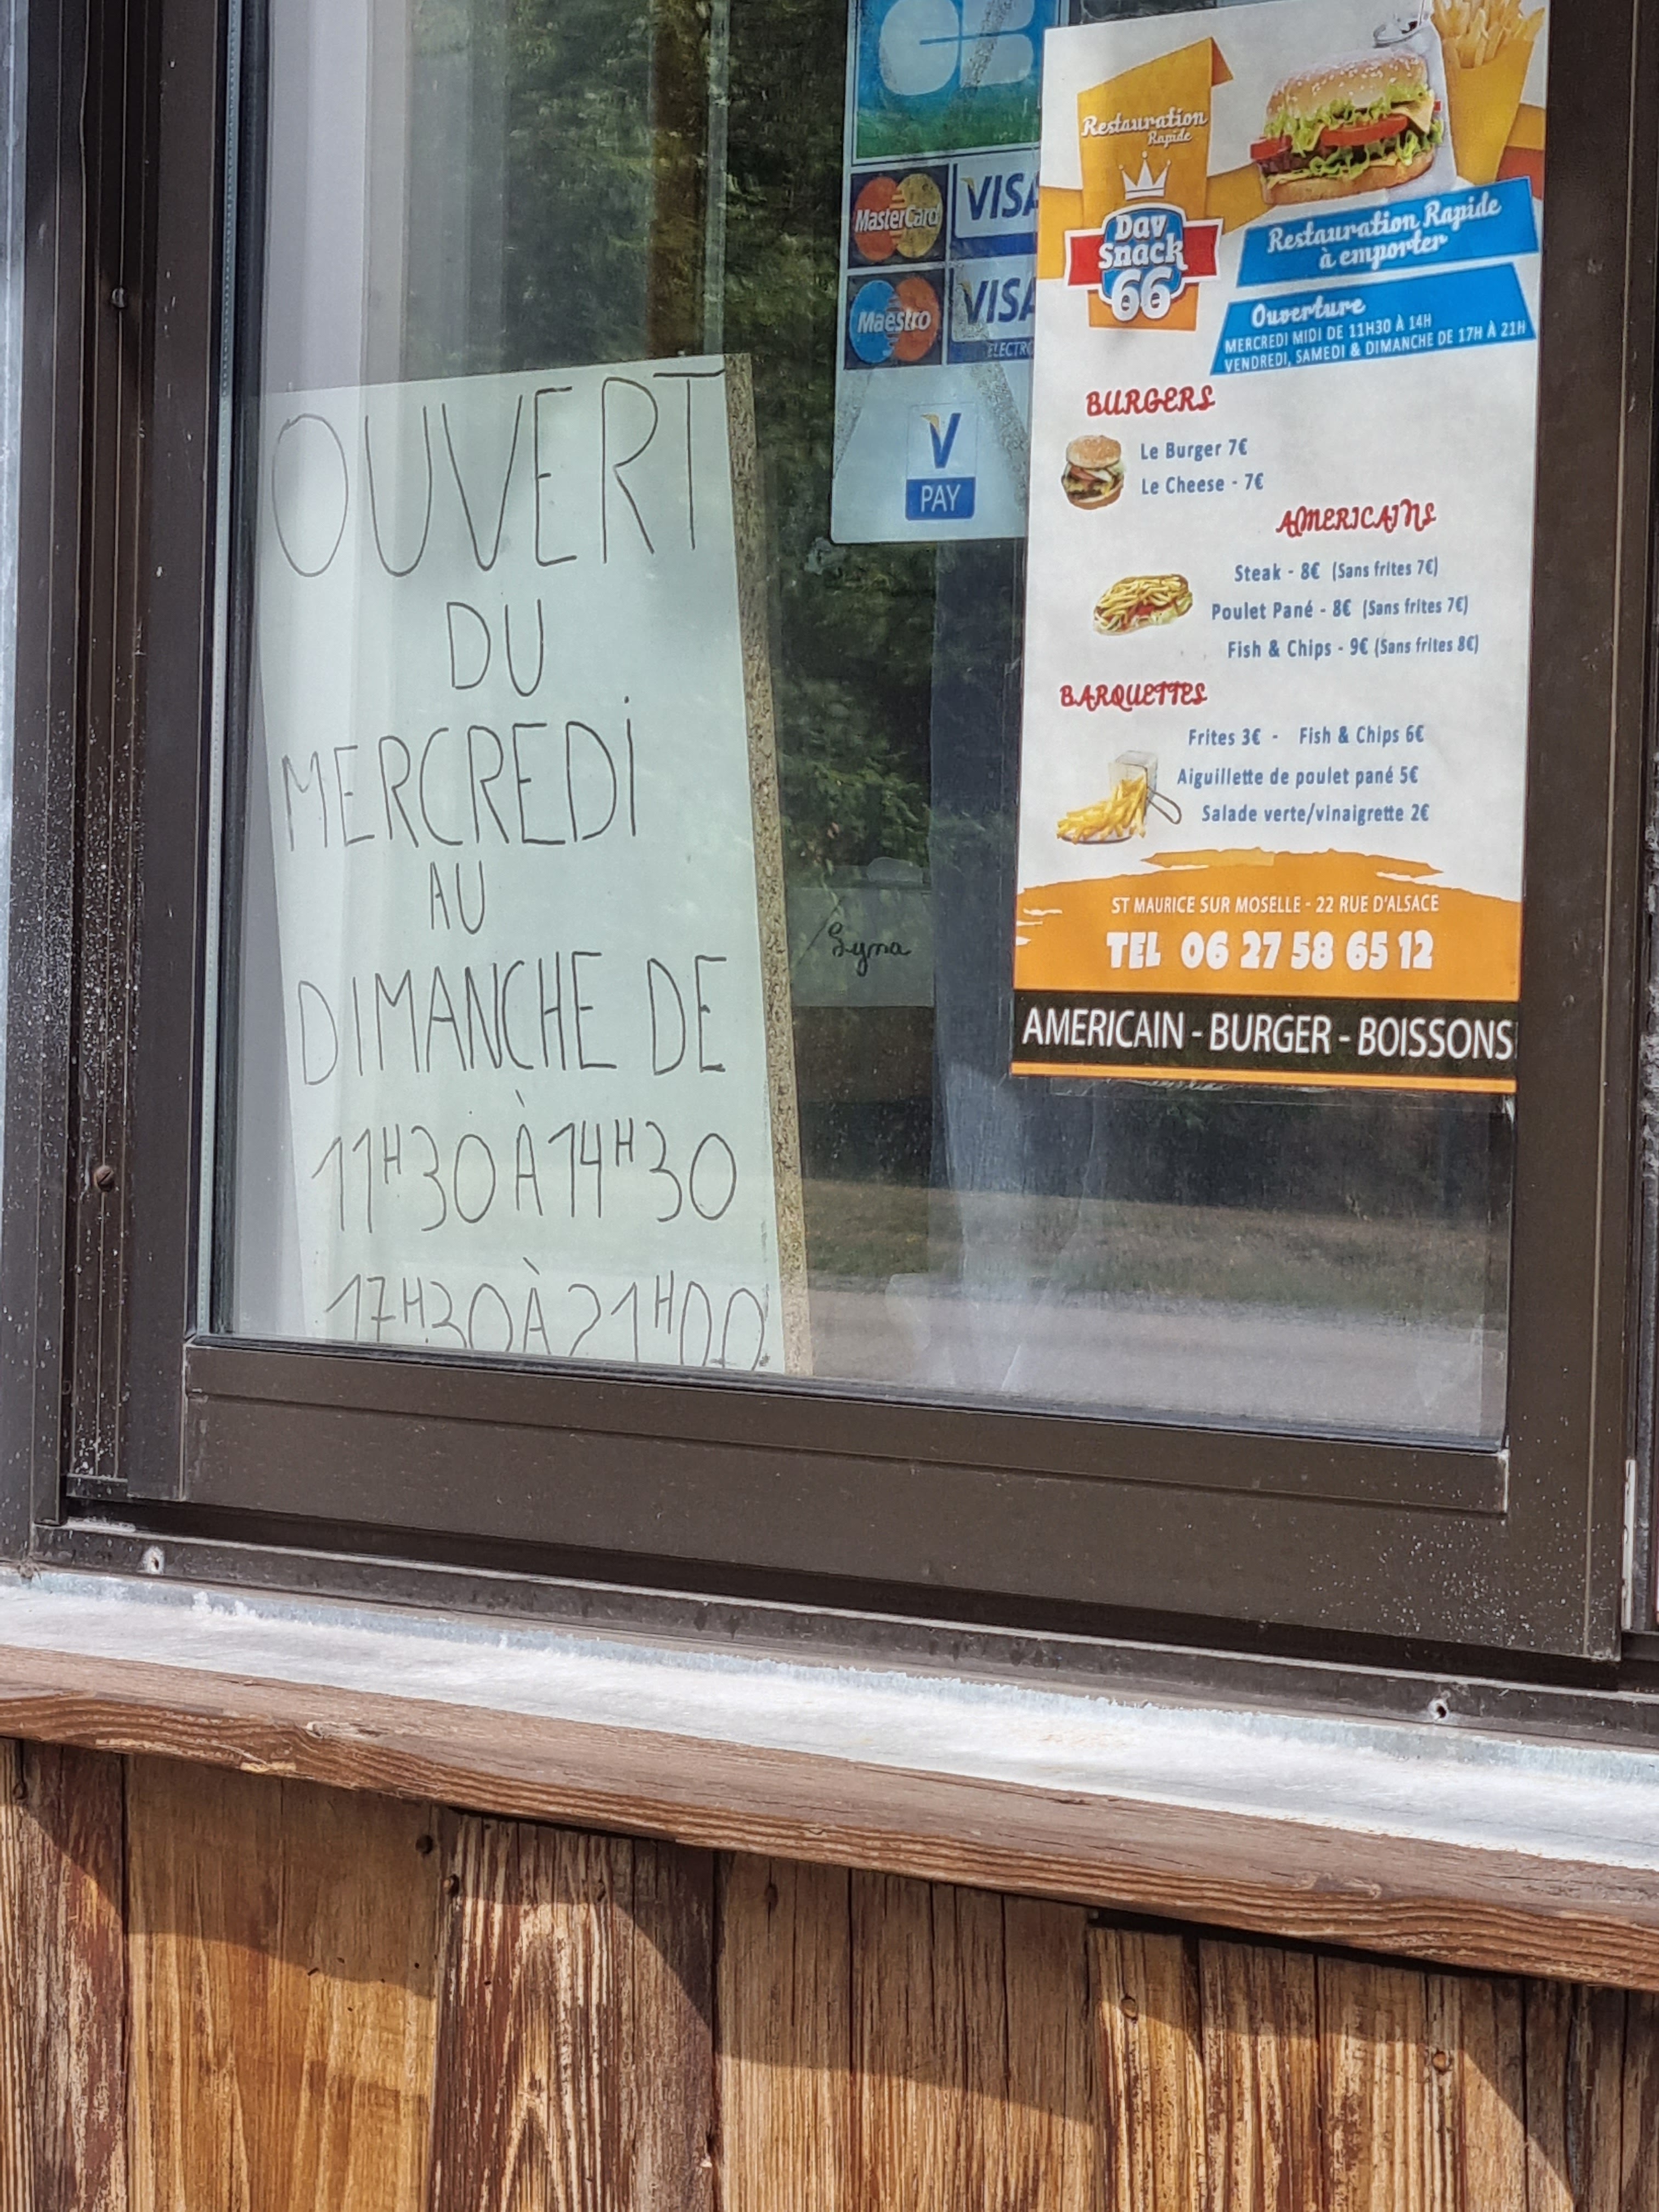 OUVERT
DU
MERCREDI
AU
DIMANCHE DE
11H30 À 14H30
17H30 À 21H00
MasterCard
VISA
Maestro
VISA
V
PAY
Syma
Restauration
Rapide
Dav
Snack
66
Restauration Rapide
à emporter
Ouverture
MERCREDI MIDI DE 11H30 À 14H
VENDREDI, SAMEDI & DIMANCHE DE 17H À 21H
BURGERS
Le Burger 7€
Le Cheese - 7€
AMERICAINS
Steak - 8€ (Sans frites 7€)
Poulet Pané - 8€ (Sans frites 7€)
Fish & Chips - 9€ (Sans frites 8€)
BARQUETTES
Frites 3€ - Fish & Chips 6€
Aiguillette de poulet pané 5€
Salade verte/vinaigrette 2€
ST MAURICE SUR MOSELLE - 22 RUE D'ALSACE
TEL 06 27 58 65 12
AMERICAIN - BURGER - BOISSONS